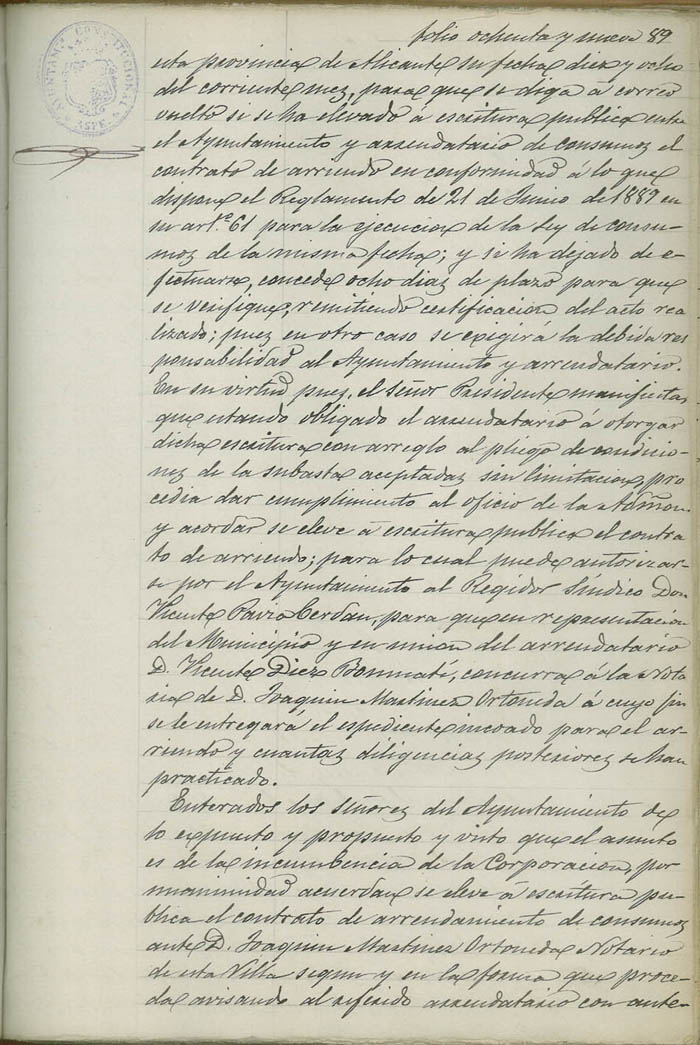 folio ochenta y nueve 89
AYUNTAMTO CONSTITUCIONAL
ASPE
esta provincia de Alicante su fecha diez y ocho
del corriente mez, para que se diga á correo
vuelto si se ha elevado á escritura publica entre
el Ayuntamiento y arrendatario de consumoz el
contrato de arriendo en conformidad á lo que
dispone el Reglamento de 21 de Junio de 1889 en
su artº 61 para la ejecucion de la Ley de consu-
moz de la misma fecha; y si se ha dejado de e-
fectuarse, concede ocho diaz de plazo para que
se verifique, remitiendo certificacion del acto rea
lizado; puez en otro caso se exigirá la debida res
ponsabilidad al Ayuntamiento y arrendatario.
En su virtud puez, el Señor Presidente manifiesta
que estando obligado el arrendatario á otorgar
dicha escritura con arreglo al pliego de condicio-
nez de la subasta aceptadaz sin limitacion, pro
cedia dar cumplimiento al oficio de la Admon
y acordar se eleve á escritura publica el contra
to de arriendo; para lo cual puede autorizar-
se por el Ayuntamiento al Regidor Síndico Don
Vicente Pavia Cerdan, para que en representacion
del Municipio y en union del arrendatario
D. Vicente Diez Bonmatí, concurra á la Nota
ria de D. Joaquin Martinez Ortoneda á cuyo fin
se le entregará el espediente incoado para el ar-
riendo y cuantaz diligenciaz posteriorez se han
practicado.
Enterados los Señorez del Ayuntamiento de
lo expuesto y propuesto y visto que el asunto
es de la incumbencia de la Corporacion, por
unanimidad acuerdan se eleve á escritura pu-
blica el contrato de arrendamiento de consumoz
ante D. Joaquin Martinez Ortoneda Notario
de esta Villa segun y en la forma que proce-
da, avisando al referido arrendatario con ante-